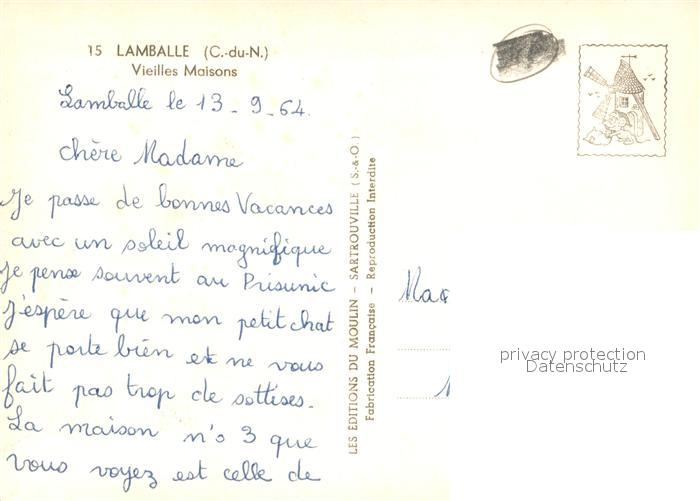 15 LAMBALLE (C.-du-N.)
Vieilles Maisons
Lamballe le 13-9-64.
chère Madame
Je passe de bonnes Vacances
avec un soleil magnifique
je pense souvent au Prisunic
j'espère que mon petit chat
se porte bien et ne vous
fait pas trop de sottises.
La maison n'o 3 que
vous voyez est celle de
LES EDITIONS DU MOULIN – SARTROUVILLE (S.-&-O.)
Fabrication Française – Reproduction Interdite
privacy protection
Datenschutz